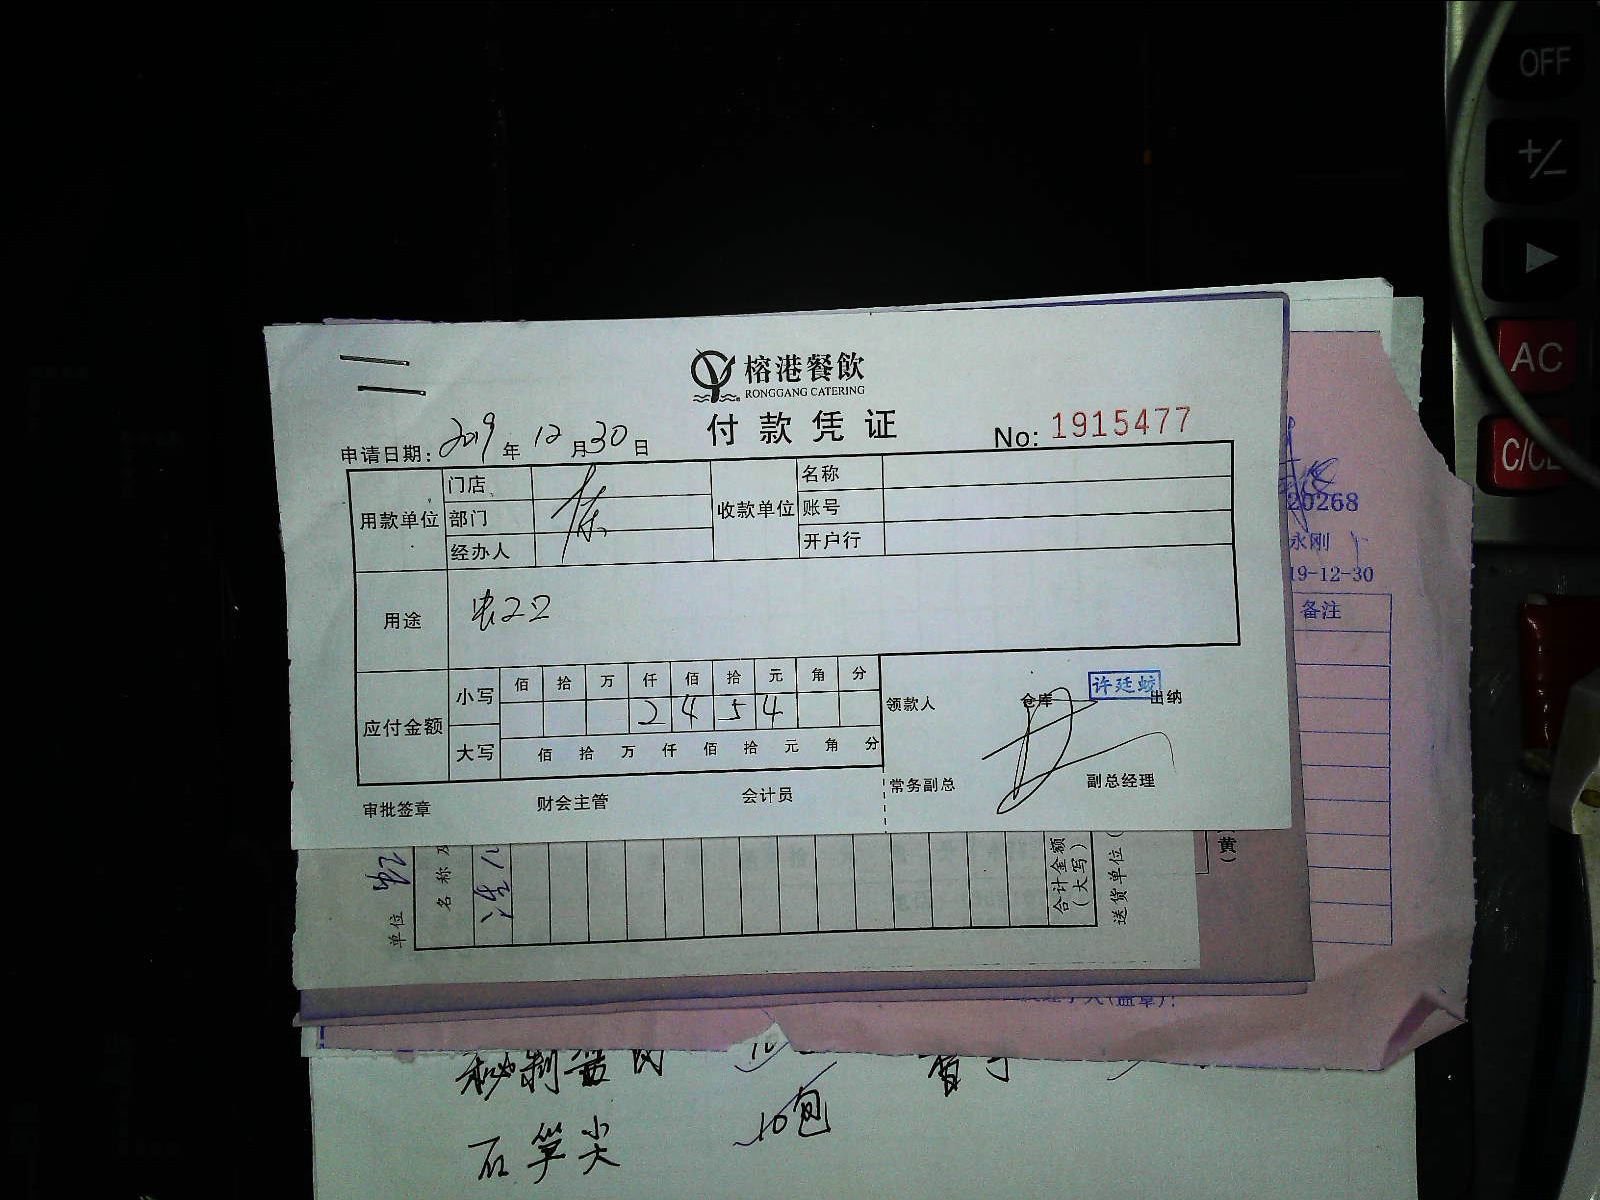 OFF
+/−
▶
AC
C/CE
榕港餐飲
RONGGANG CATERING
付款凭证
No: 1915477
申请日期: 2019 年 12 月 30 日
用款单位 门店 收款单位 名称
部门 账号
经办人 开户行
用途
应付金额 小写 佰 拾 万 仟 佰 拾 元 角 分
2 4 5 4
大写 佰 拾 万 仟 佰 拾 元 角 分
领款人 仓库 许廷蛟 出纳
常务副总 副总经理
审批签章 财会主管 会计员
20268
永刚
19-12-30
备注
单位
名称及
合计金额
(大写)
送货单位(
(黄
(盖章):
秘制酱肉
石笋尖 10包